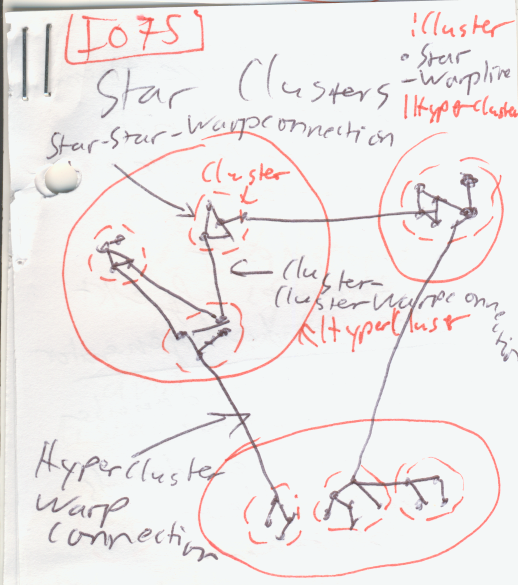 I075
Star Clusters
Cluster
Star
-Warpline
Hypercluster
Star-Star-Warpconnection
Cluster
Cluster-
ClusterWarpconnection
HyperCluster
Hypercluster
Warp
Connection